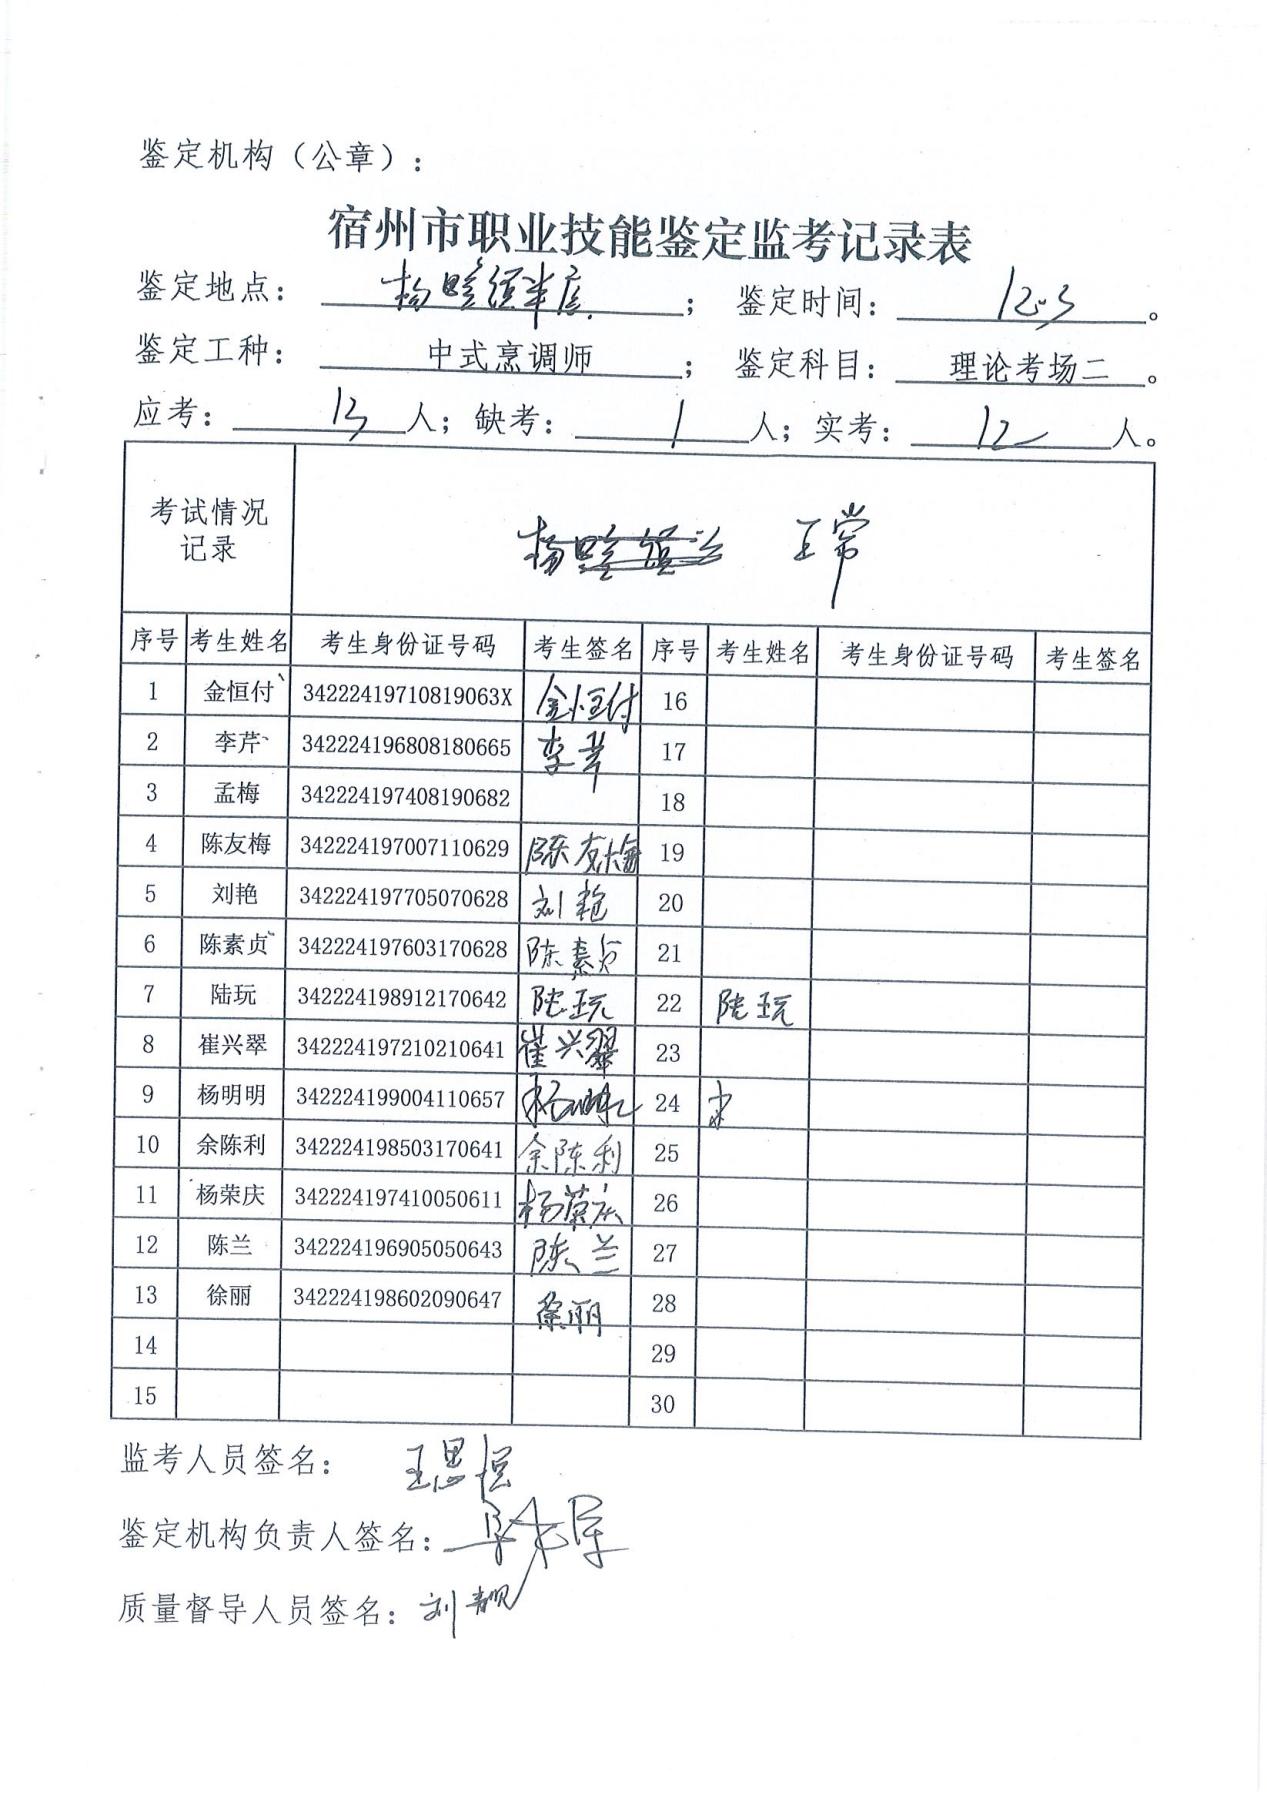 鉴定机构（公章）:
宿州市职业技能鉴定监考记录表
鉴定地点: 杨 ; 鉴定时间: 12.3 。
鉴定工种: 中式烹调师 ; 鉴定科目: 理论考场二 。
应考: 13 人; 缺考: 1 人; 实考: 12 人。
考试情况记录 正常
序号 考生姓名 考生身份证号码 考生签名 序号 考生姓名 考生身份证号码 考生签名
1 金恒付 34222419710819063X 金恒付 16
2 李芹 342224196808180665 李芹 17
3 孟梅 342224197408190682 18
4 陈友梅 342224197007110629 陈友梅 19
5 刘艳 342224197705070628 刘艳 20
6 陈素贞 342224197603170628 陈素贞 21
7 陆玩 342224198912170642 陆玩 22 陆玩
8 崔兴翠 342224197210210641 崔兴翠 23
9 杨明明 342224199004110657 杨明明 24
10 余陈利 342224198503170641 余陈利 25
11 杨荣庆 342224197410050611 杨荣庆 26
12 陈兰 342224196905050643 陈兰 27
13 徐丽 342224198602090647 徐丽 28
14 29
15 30
监考人员签名: 王思恒
鉴定机构负责人签名:
质量督导人员签名: 刘靓